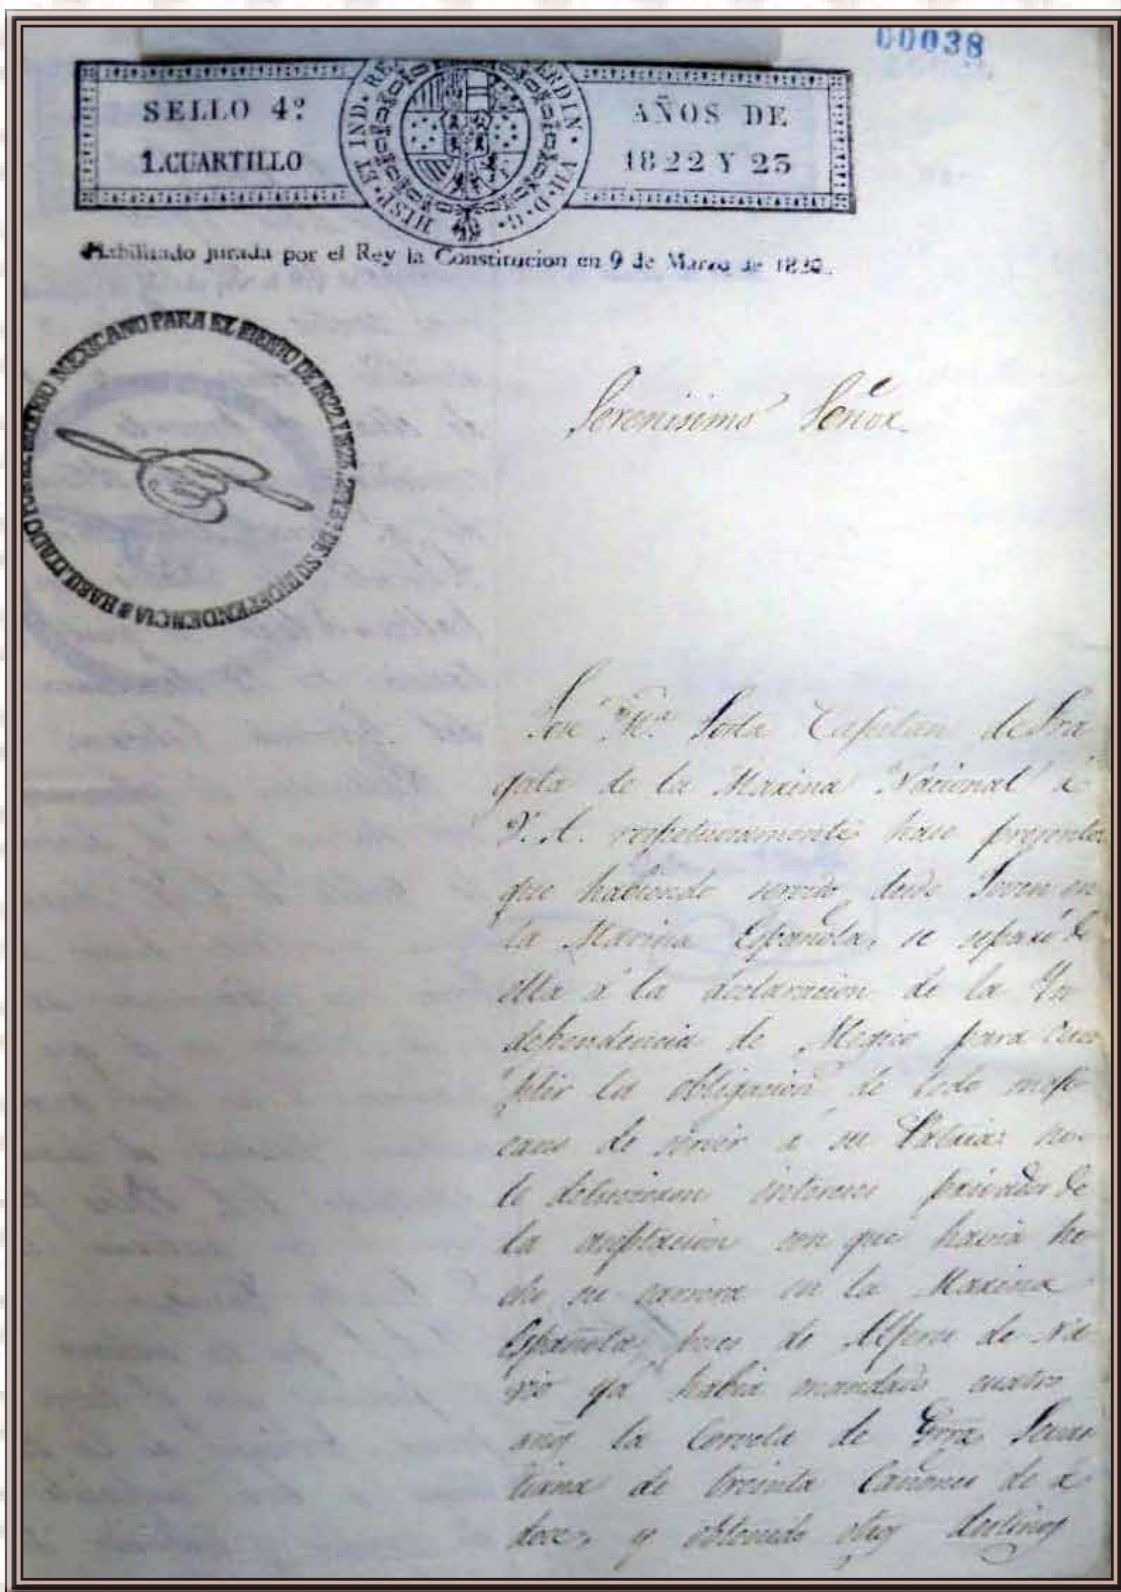 00038
SELLO 4º
1. CUARTILLO
HISP. ET IND. RE ERDIN. VII. D. G.
AÑOS DE
1822 Y 23
Habilitado jurada por el Rey la Constitucion en 9 de Marzo de 1820.
HABILITADO POR EL IMPERIO MEXICANO PARA EL BIENIO DE 1822 Y 1823. 2º Y 3º DE SU INDEPENDENCIA
Serenisimo Señor
José Mª Capitan de Fra
gata de la Marina Nacional à
V. A. respetuosamente hace presente
que habiendo servido desde Joven en
la Marina Española, se separó de
ella à la declaracion de la In
dependencia de Megico para cum
plir la obligacion de todo meji
cano de servir à su Patria: no
le detuvieron intereses privados de
la aceptacion con que havia he
cho su carrera en la Marina
Española, pues de Alferez de Na
vio ya habia mandado cuatro
años la Corveta de Grra.
de treinta Cañones de à
doce, y obtenido otros destinos